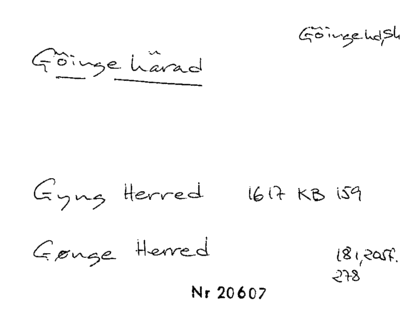 Göinge hd, Sk
Göinge härad
Gyng Herred 1617 KB 159
Gønge Herred 181, 205f.
278
Nr 20607